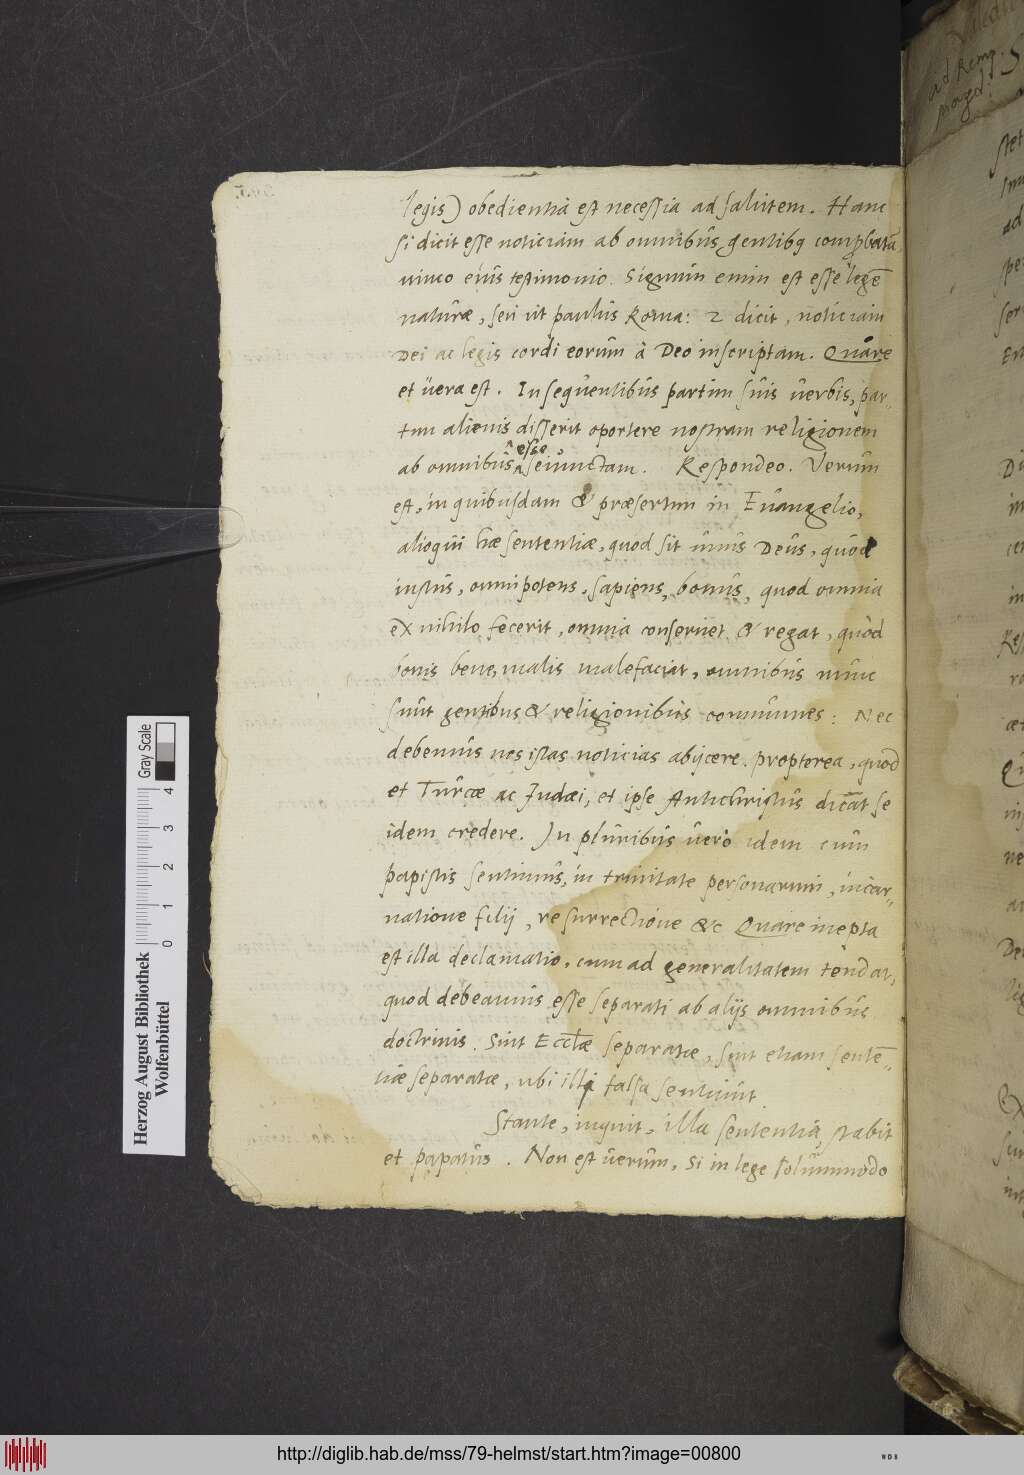 legis) obedientia est necessia ad salutem. Hanc
si dicit esse noticiam ab omnibus gentibq comprobatā
vinco eius testimonio. Signum enim est esse legē
naturæ, seu ut paulus Roma: 2 dicit, noticiam
Dei ac legis cordi eorum à Deo inscriptam. Quare
et vera est. In sequentibus partim suis verbis, par-
tim alienis disserit oportere nostram religionem
ab omnibus esse seiunctam. Respondeo. Verum
est, in quibusdam & præsertim in Euangelio,
alioqui hæ sententiæ, quod sit unus Deus, quod
iustus, omnipotens, sapiens, bonus, quod omnia
ex nihilo fecerit, omnia conservet & regat, quòd
bonis bene, malis malefaciat, omnibus
sunt gentibus & religionibus communes: Nec
debemus nos istas noticias abijcere. propterea, quod
et Turcæ ac Judæi, et ipse Antichristus dicāt se
idem credere. In pluribus vero idem cum
papistis sentimus, in trinitate personarum, incar-
natione filij, resurrectione &c Quare inepta
est illa declamatio, cum ad generalitatem tendat,
quod debeamus esse separati ab alijs omnibus
doctrinis. Sint Ecclæ separatæ, sint etiam sentē-
tiæ separatæ, ubi illi falsa sentiunt
Stante, inquit, illa sententia, stabit
et papatus. Non est verum, Si in lege solummodo
ad Remp.
Magd:
Herzog August Bibliothek
Wolfenbüttel
0 1 2 3 4
Gray Scale
http://diglib.hab.de/mss/79-helmst/start.htm?image=00800